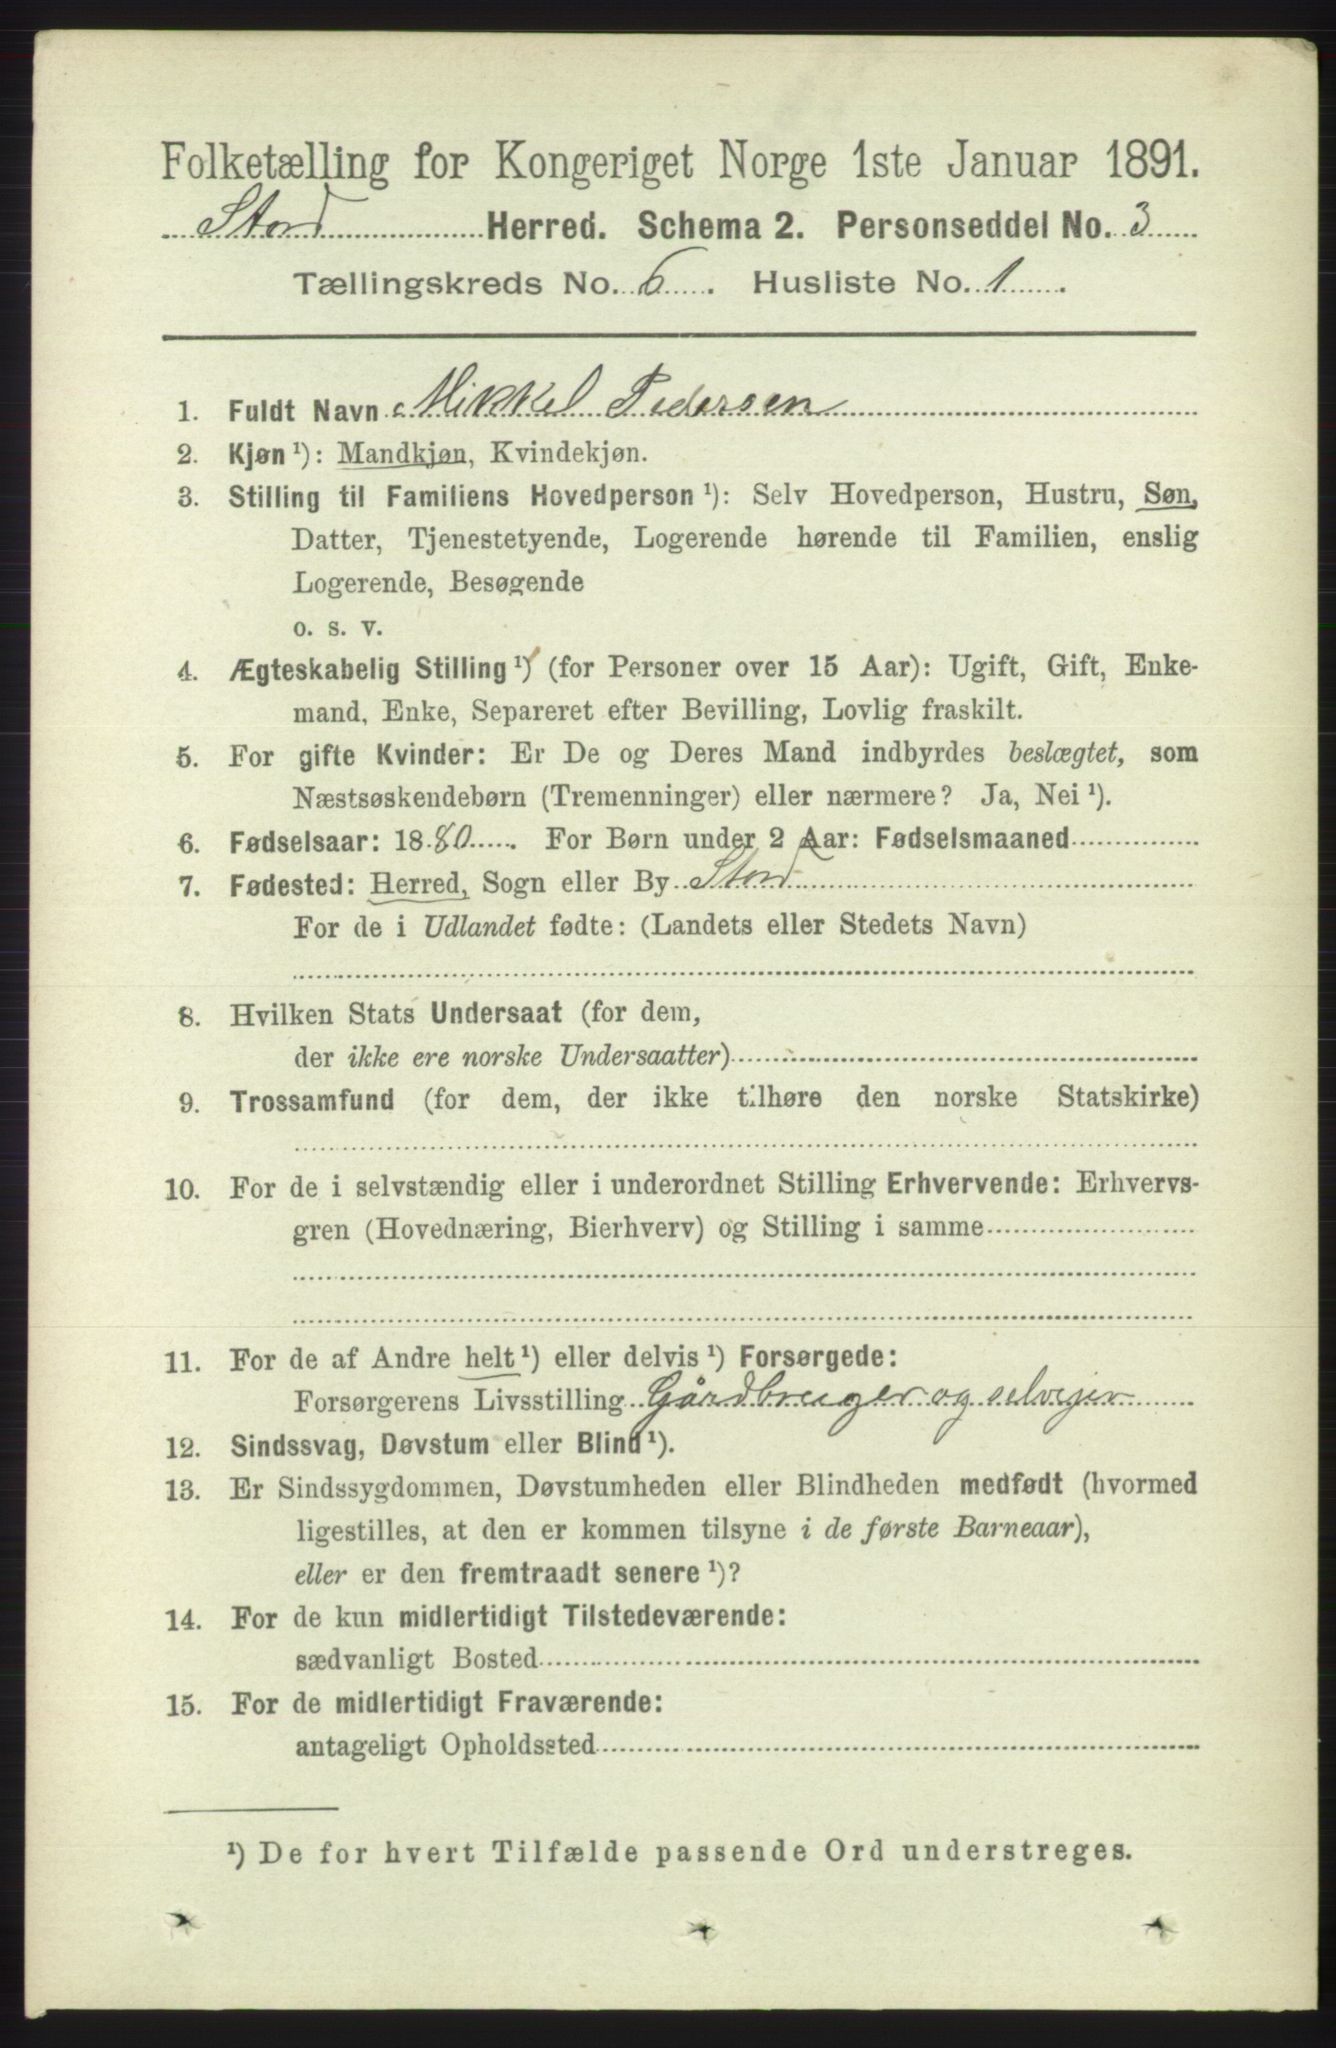 Folketælling for Kongeriget Norge 1ste Januar 1891.
Stord Herred. Schema 2. Personseddel No. 3
Tællingskreds No. 6. Husliste No. 1.
1. Fuldt Navn Mikkel Pedersen
2. Kjøn ¹): Mandkjøn, Kvindekjøn.
3. Stilling til Familiens Hovedperson ¹): Selv Hovedperson, Hustru, Søn,
Datter, Tjenestetyende, Logerende hørende til Familien, enslig
Logerende, Besøgende
o. s. v.
4. Ægteskabelig Stilling ¹) (for Personer over 15 Aar): Ugift, Gift, Enke-
mand, Enke, Separeret efter Bevilling, Lovlig fraskilt.
5. For gifte Kvinder: Er De og Deres Mand indbyrdes beslægtet, som
Næstsøskendebørn (Tremenninger) eller nærmere? Ja, Nei ¹).
6. Fødselsaar: 1880. For Børn under 2 Aar: Fødselsmaaned
7. Fødested: Herred, Sogn eller By Stord
For de i Udlandet fødte: (Landets eller Stedets Navn)
8. Hvilken Stats Undersaat (for dem,
der ikke ere norske Undersaatter)
9. Trossamfund (for dem, der ikke tilhøre den norske Statskirke)
10. For de i selvstændig eller i underordnet Stilling Erhvervende: Erhvervs-
gren (Hovednæring, Bierhverv) og Stilling i samme
11. For de af Andre helt ¹) eller delvis ¹) Forsørgede:
Forsørgerens Livsstilling Gårdbruger og selvejer
12. Sindssvag, Døvstum eller Blind ¹).
13. Er Sindssygdommen, Døvstumheden eller Blindheden medfødt (hvormed
ligestilles, at den er kommen tilsyne i de første Barneaar),
eller er den fremtraadt senere ¹)?
14. For de kun midlertidigt Tilstedeværende:
sædvanligt Bosted
15. For de midlertidigt Fraværende:
antageligt Opholdssted
¹) De for hvert Tilfælde passende Ord understreges.